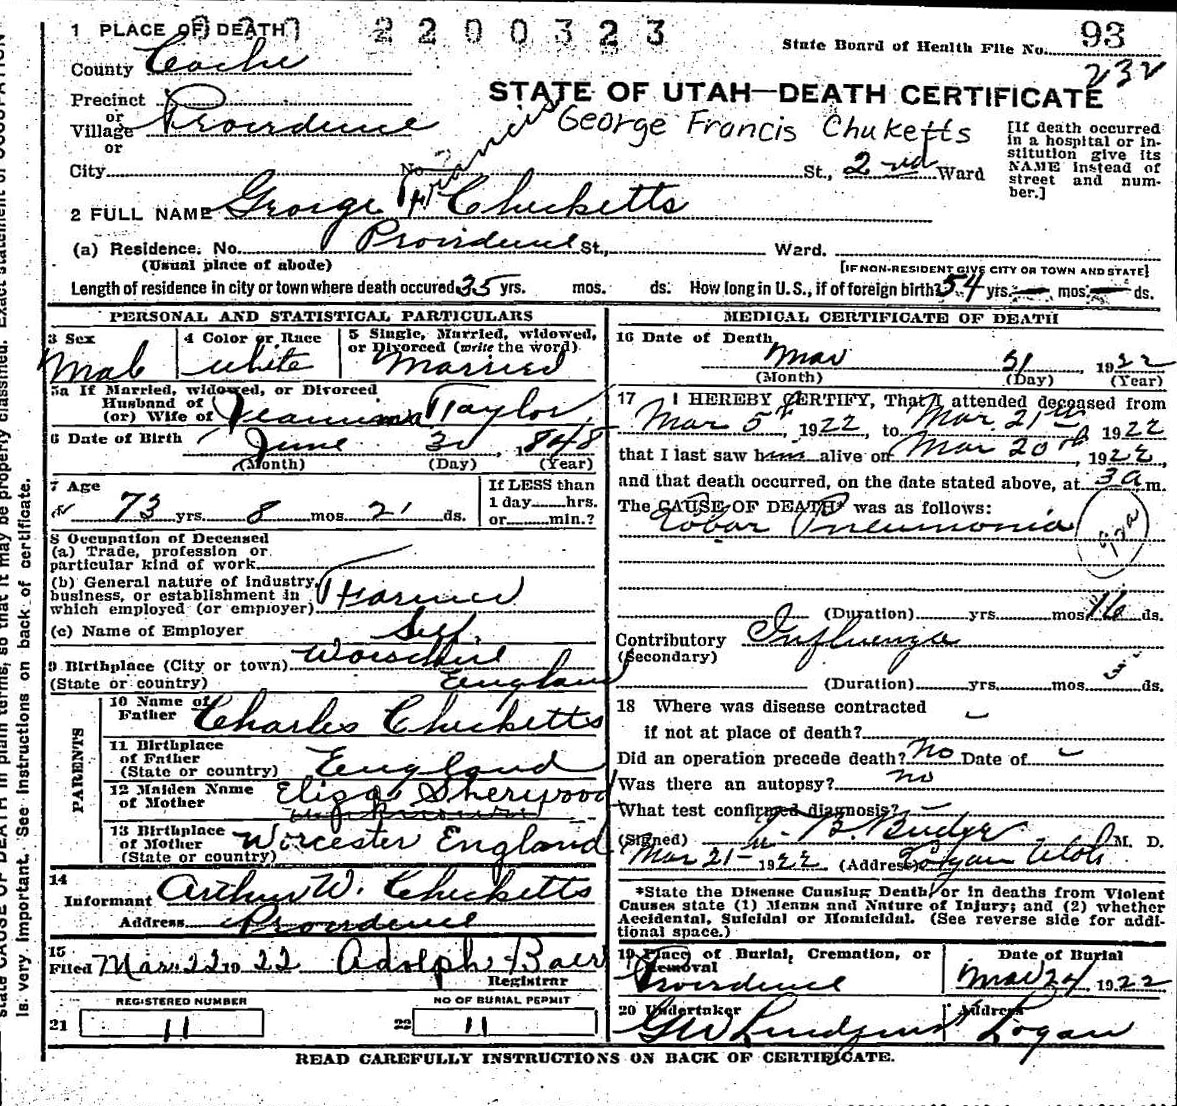 1 PLACE OF DEATH 2200323
State Board of Health File No. 93
232
County Cache
STATE OF UTAH—DEATH CERTIFICATE
Precinct
or
Village Providence
or
George Francis Chuketts
[If death occurred in a hospital or institution give its NAME instead of street and number.]
City No. St., 2nd Ward
Francis
2 FULL NAME George F. Checketts
(a) Residence. No. Providence St., Ward.
(Usual place of abode)
[IF NON-RESIDENT GIVE CITY OR TOWN AND STATE]
Length of residence in city or town where death occured 35 yrs. mos. ds. How long in U.S., if of foreign birth? 54 yrs. — mos. — ds.
PERSONAL AND STATISTICAL PARTICULARS
3 Sex Male
4 Color or Race White
5 Single, Married, widowed, or Divorced (write the word) Married
5a If Married, widowed, or Divorced
Husband of
(or) Wife of Taylor
6 Date of Birth June 30, 1848
(Month) (Day) (Year)
7 Age 73 yrs. 8 mos. 21 ds.
If LESS than
1 day hrs.
or min.?
8 Occupation of Deceased
(a) Trade, profession or
particular kind of work
(b) General nature of industry,
business, or establishment in
which employed (or employer) Farmer
(c) Name of Employer Self.
9 Birthplace (City or town)
(State or country) England
PARENTS
10 Name of
Father Charles Checketts
11 Birthplace
of Father
(State or country) England
12 Maiden Name
of Mother Eliza Sherwood
13 Birthplace
of Mother
(State or country) Worcester England
14
Informant Arthur W. Checketts
Address Providence
15
Filed Mar. 22 1922 Adolph Baer
Registrar
REGISTERED NUMBER
21 11
NO OF BURIAL PERMIT
22 11
MEDICAL CERTIFICATE OF DEATH
16 Date of Death
Mar 21 1922
(Month) (Day) (Year)
17 I HEREBY CERTIFY, That I attended deceased from
Mar 5th, 1922, to Mar 21st 1922
that I last saw him alive on Mar 20th, 1922,
and that death occurred, on the date stated above, at 3 a.m.
The CAUSE OF DEATH* was as follows:
Lobar Pneumonia
(Duration) yrs. mos. 16 ds.
Contributory Influenza
(Secondary)
(Duration) yrs. mos. ds.
18 Where was disease contracted
if not at place of death?
Did an operation precede death? No Date of
Was there an autopsy? no
What test confirmed diagnosis? —
(Signed) B. Budge M. D.
Mar 21- 1922 (Address) Logan Utah
*State the Disease Causing Death, or in deaths from Violent
Causes state (1) Means and Nature of Injury; and (2) whether
Accidental, Suicidal or Homicidal. (See reverse side for addi-
tional space.)
19 Place of Burial, Cremation, or
Removal
Providence
Date of Burial
Mar 24, 1922
20 Undertaker
Address
Logan
READ CAREFULLY INSTRUCTIONS ON BACK OF CERTIFICATE.
state CAUSE OF DEATH in plain terms, so that it may be properly classified. Exact statement of OCCUPATION
is very important. See instructions on back of certificate.